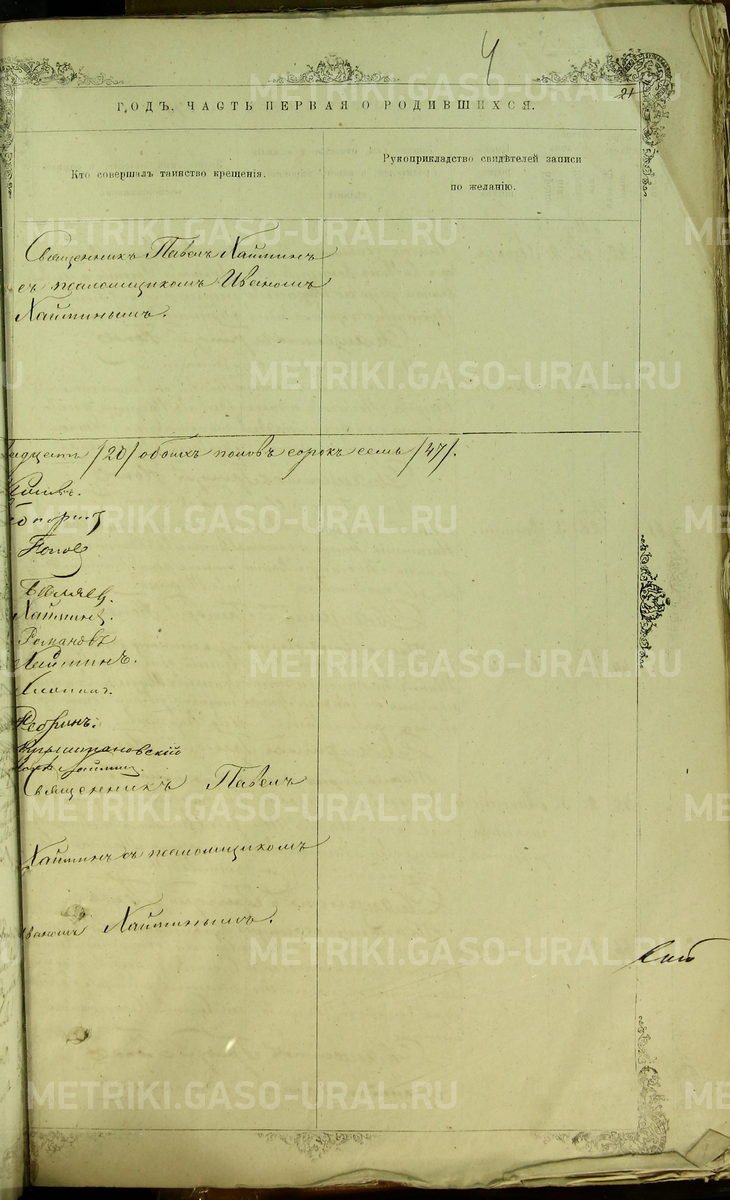 4
21
ГОДЪ. ЧАСТЬ ПЕРВАЯ О РОДИВШИХСЯ.
Кто совершалъ таинство крещенія.
Рукоприкладство свидѣтелей записи
по желанію.
Священникъ Павелъ Хайминъ
съ псаломщикомъ Иваномъ
Хайминымъ.
/20/ обоихъ половъ сорокъ семь /47/.
Поповъ
Бѣляев.
Хайминъ.
Романовъ
Хайминъ.
Ребринъ.
Священникъ Павелъ
Хайминъ съ псаломщикомъ
Иваномъ Хайминымъ.
METRIKI.GASO-URAL.RU